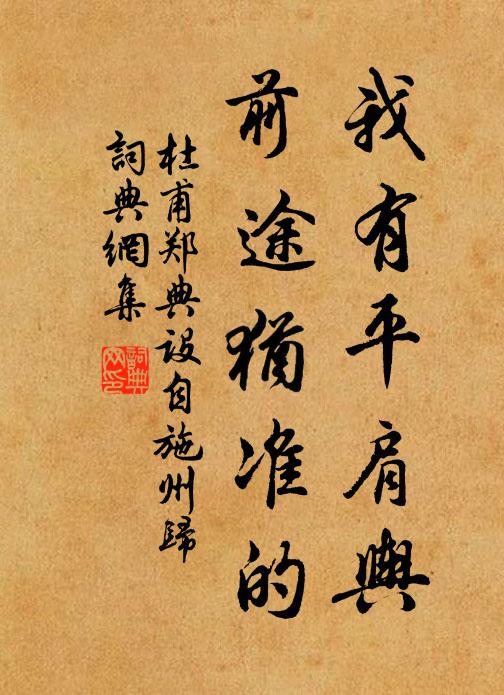 我有平肩輿
前途猶准的
杜甫郑典设自施州歸
詞典網集
詞典網印